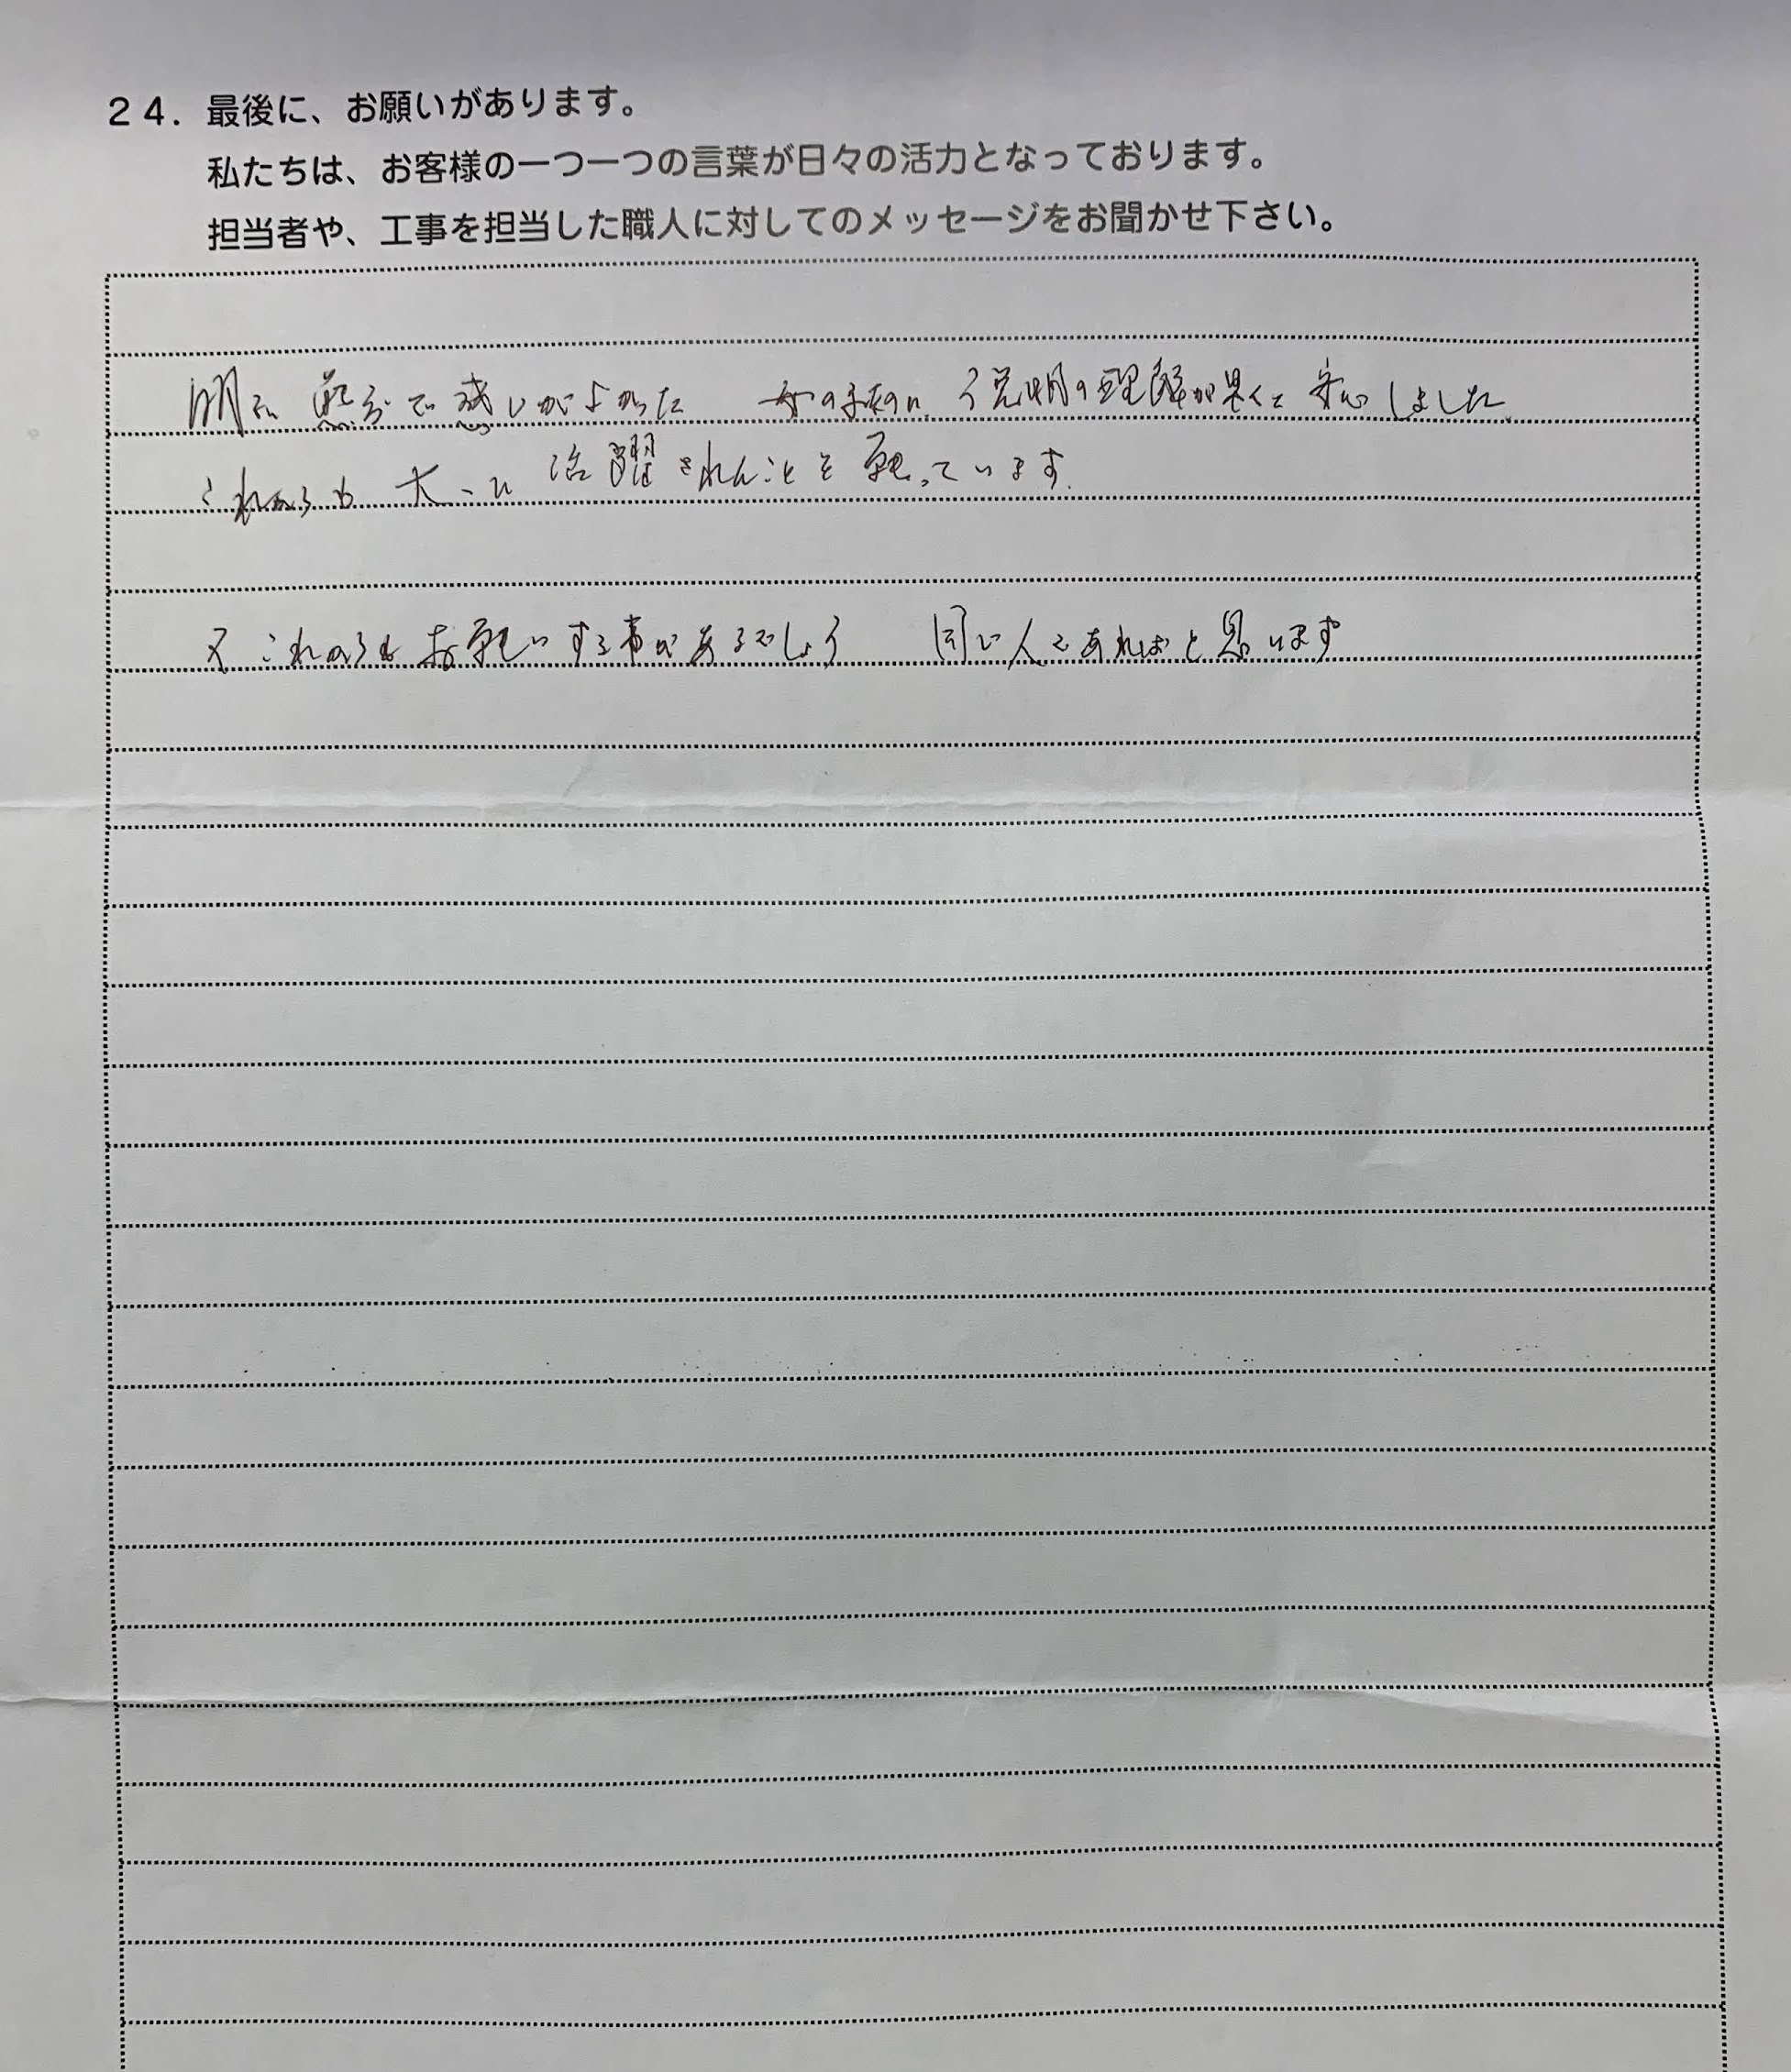 24. 最後に、お願いがあります。
私たちは、お客様の一つ一つの言葉が日々の活力となっております。
担当者や、工事を担当した職人に対してのメッセージをお聞かせ下さい。
感じがよかった 説明の理解が早くて 安心しました
これからも 大いに 活躍されんことを 願っています.
又 これからも お願いする事があるでしょう 同じ人であればと思います